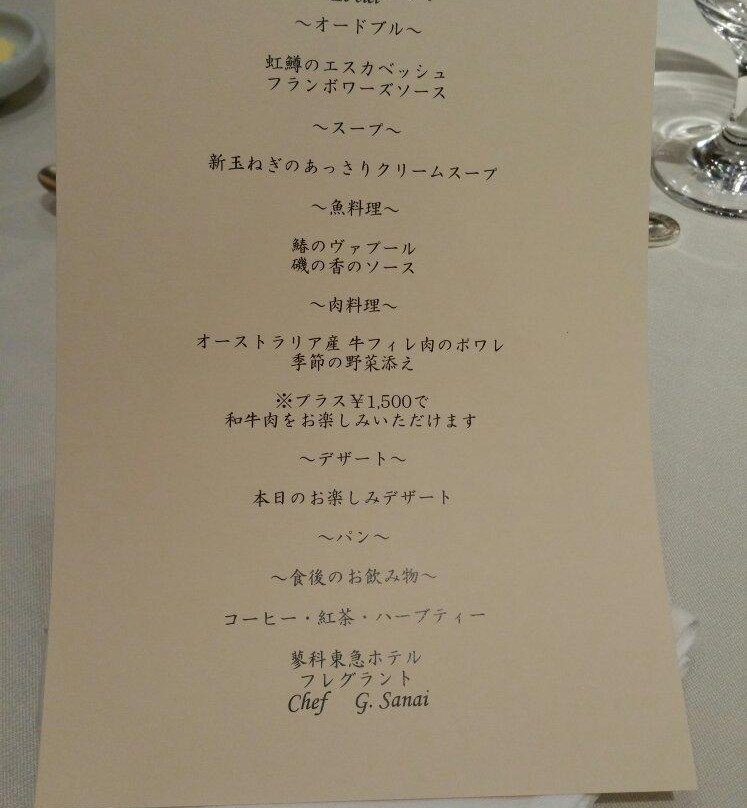 ～オードブル～
虹鱒のエスカベッシュ
フランボワーズソース
～スープ～
新玉ねぎのあっさりクリームスープ
～魚料理～
鰆のヴァプール
磯の香のソース
～肉料理～
オーストラリア産 牛フィレ肉のポワレ
季節の野菜添え
※プラス￥1,500で
和牛肉をお楽しみいただけます
～デザート～
本日のお楽しみデザート
～パン～
～食後のお飲み物～
コーヒー・紅茶・ハーブティー
蓼科東急ホテル
フレグラント
Chef G. Sanai